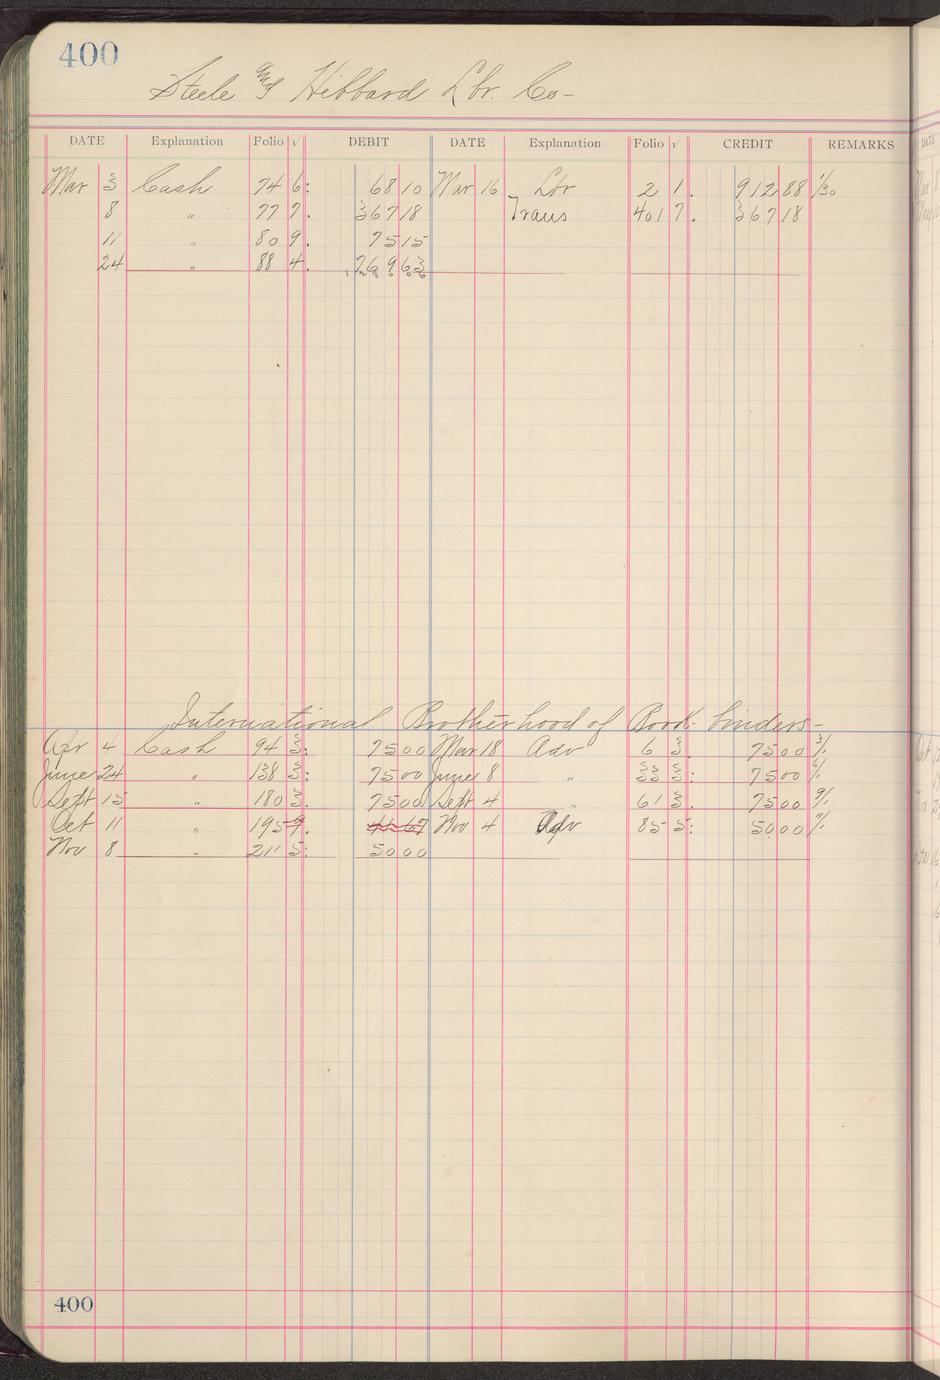 400
Steele & Hibbard Lbr. Co-
DATE Explanation Folio √ DEBIT DATE Explanation Folio √ CREDIT REMARKS
Mar 3 Cash 74 6: 68 10 Mar 16 Lbr 2 1. 912 88 1/30
8 " 77 7. 367 18 Trans 401 7. 367 18
11 " 80 9. 75 15
24 " 88 4. 769 63
International Brotherhood of Book-binders-
Apr 4 Cash 94 3: 75 00 Mar 18 Adv 6 3. 75 00 3/.
June 24 " 138 3: 75 00 June 8 " 33 3: 75 00 6/.
Sept 15 " 180 3. 75 00 Sept 4 " 61 3. 75 00 9/.
Oct 11 " 195 9. 41 67 Nov 4 Adv 85 5: 50 00 11/.
Nov 8 " 211 5: 50 00
400